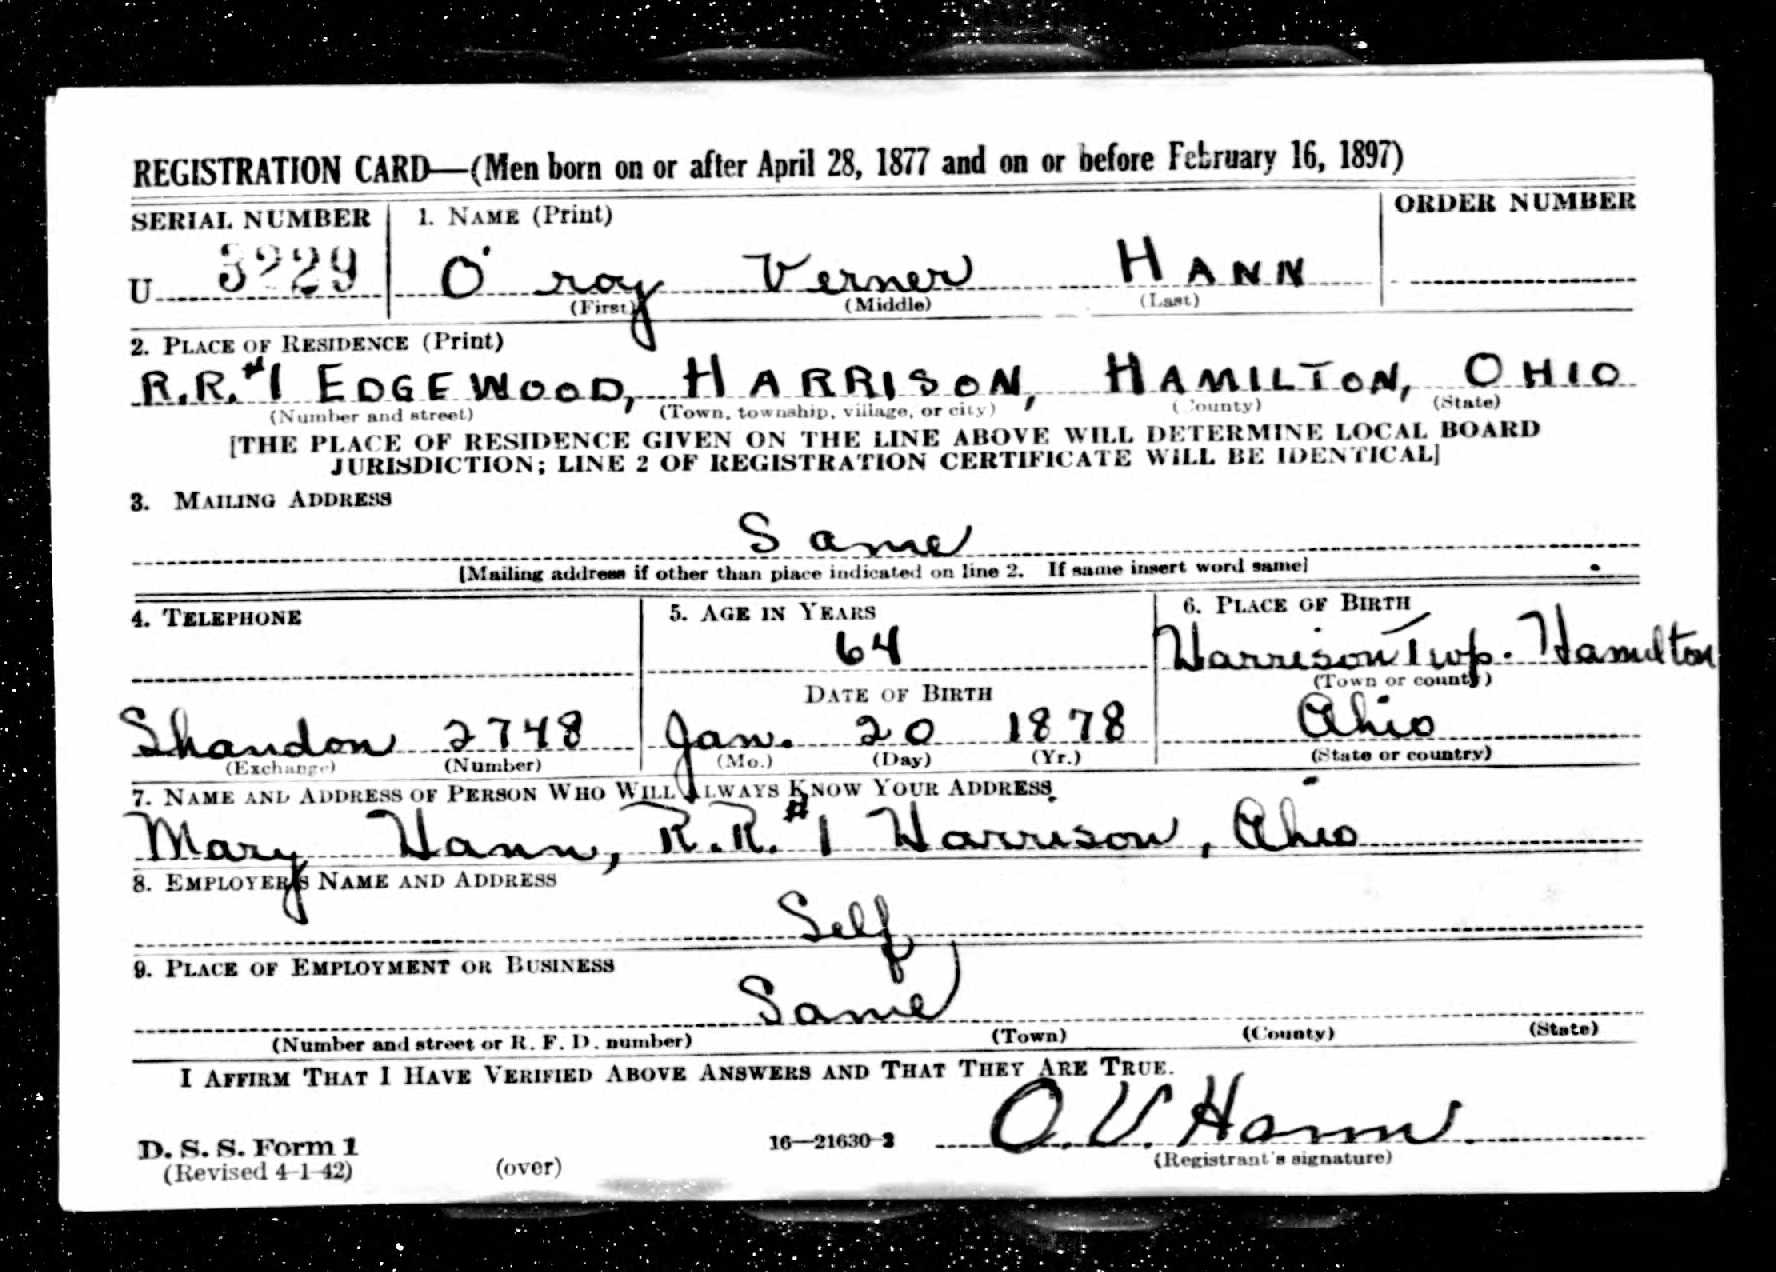 REGISTRATION CARD—(Men born on or after April 28, 1877 and on or before February 16, 1897)
SERIAL NUMBER 1. NAME (Print) ORDER NUMBER
U 3229 O' roy Verner HANN
(First) (Middle) (Last)
2. PLACE OF RESIDENCE (Print)
R.R. #1 EDGEWOOD, HARRISON, HAMILTON, OHIO
(Number and street) (Town, township, village, or city) (County) (State)
[THE PLACE OF RESIDENCE GIVEN ON THE LINE ABOVE WILL DETERMINE LOCAL BOARD
JURISDICTION; LINE 2 OF REGISTRATION CERTIFICATE WILL BE IDENTICAL]
3. MAILING ADDRESS
Same
[Mailing address if other than place indicated on line 2. If same insert word same]
4. TELEPHONE 5. AGE IN YEARS 6. PLACE OF BIRTH
64 Harrison Twp. Hamilton
DATE OF BIRTH (Town or county)
Shandon 2748 Jan. 20 1878 Ohio
(Exchange) (Number) (Mo.) (Day) (Yr.) (State or country)
7. NAME AND ADDRESS OF PERSON WHO WILL ALWAYS KNOW YOUR ADDRESS
Mary Hann, R.R. #1 Harrison, Ohio
8. EMPLOYER'S NAME AND ADDRESS
Self
9. PLACE OF EMPLOYMENT OR BUSINESS
Same
(Number and street or R. F. D. number) (Town) (County) (State)
I AFFIRM THAT I HAVE VERIFIED ABOVE ANSWERS AND THAT THEY ARE TRUE.
O. V. Hann
D. S. S. Form 1 16—21630-2 (Registrant's signature)
(Revised 4-1-42) (over)